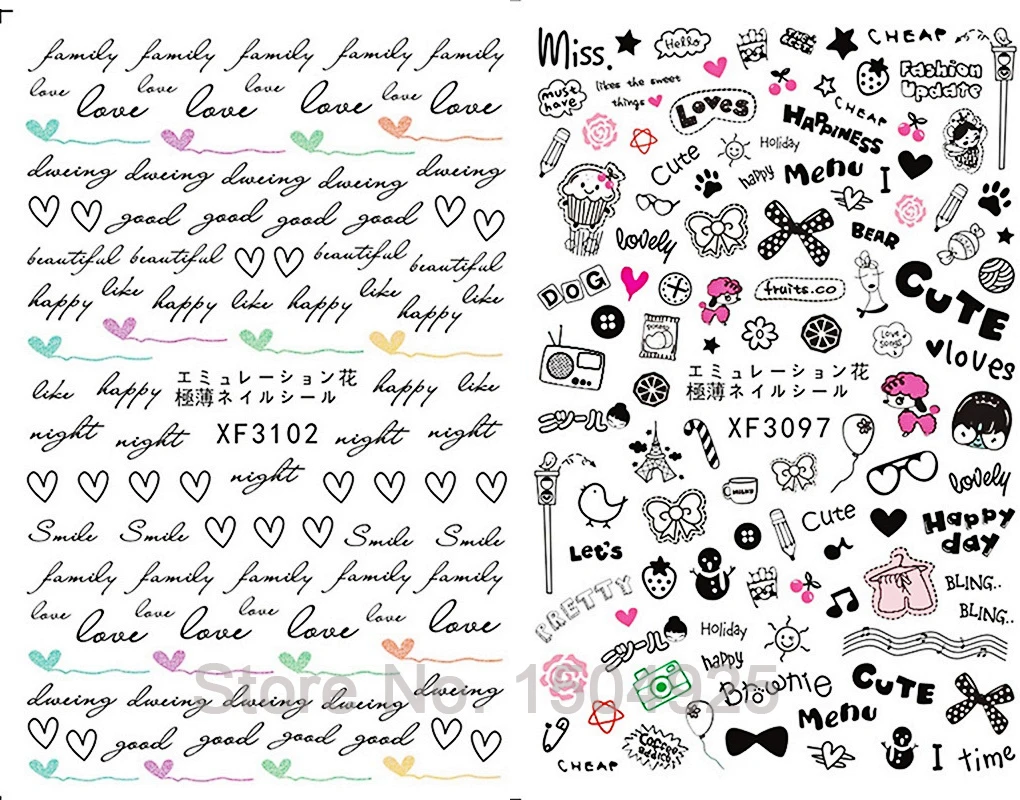 family family family family family
love love love love love love love
dweing dweing dweing dweing dweing
good good good good
beautiful beautiful beautiful beautiful
happy like happy like happy like happy like
like happy エミュレーション花 happy like
極薄ネイルシール
night night XF3102 night night
night
Smile Smile Smile Smile
family family family family family
love love love love love love love love
dweing dweing dweing dweing dweing
good good good good
Miss. Hello CHEAP
likes the sweet
things
must
have
Loves
Fashion
Update
CHEAP
HAPPINESS
Cute Holiday
happy Menu I
lovely BEAR
DOG fruits.co CUTE
Love
songs
loves
エミュレーション花
極薄ネイルシール
XF3097
ニツール
lovely
MILK
Cute Happy
day
Let's
BLING..
BLING..
PRETTY
ニツール Holiday
happy
Brownie CUTE
Menu
coffee
addict
CHEAP I time
Store No. 1904925